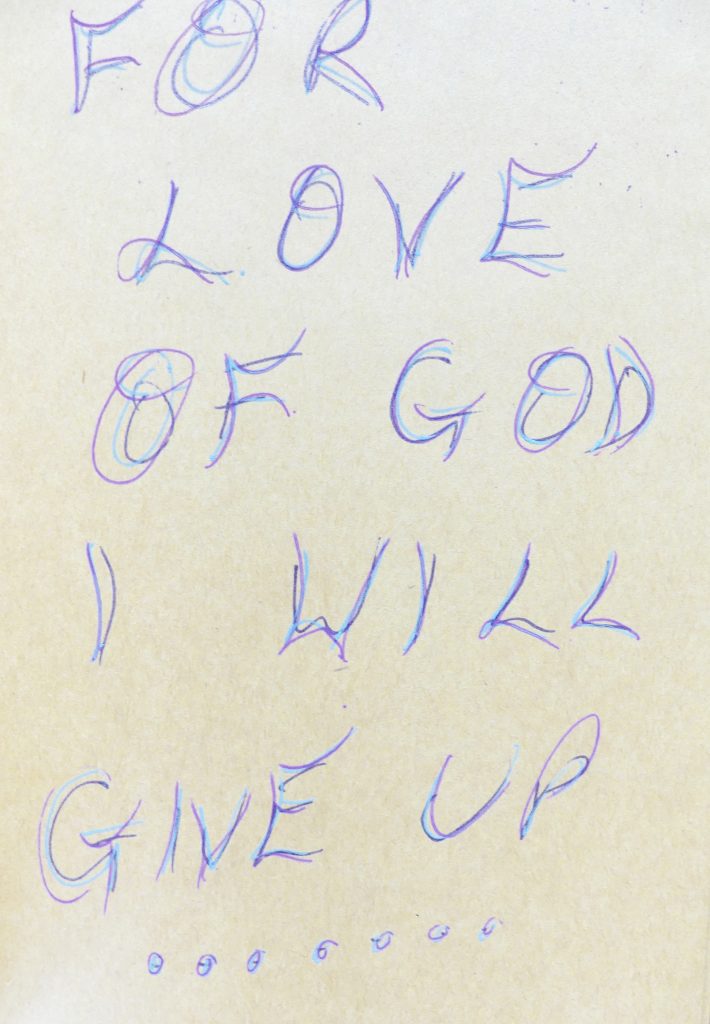 FOR
LOVE
OF GOD
I WILL
GIVE UP
.......